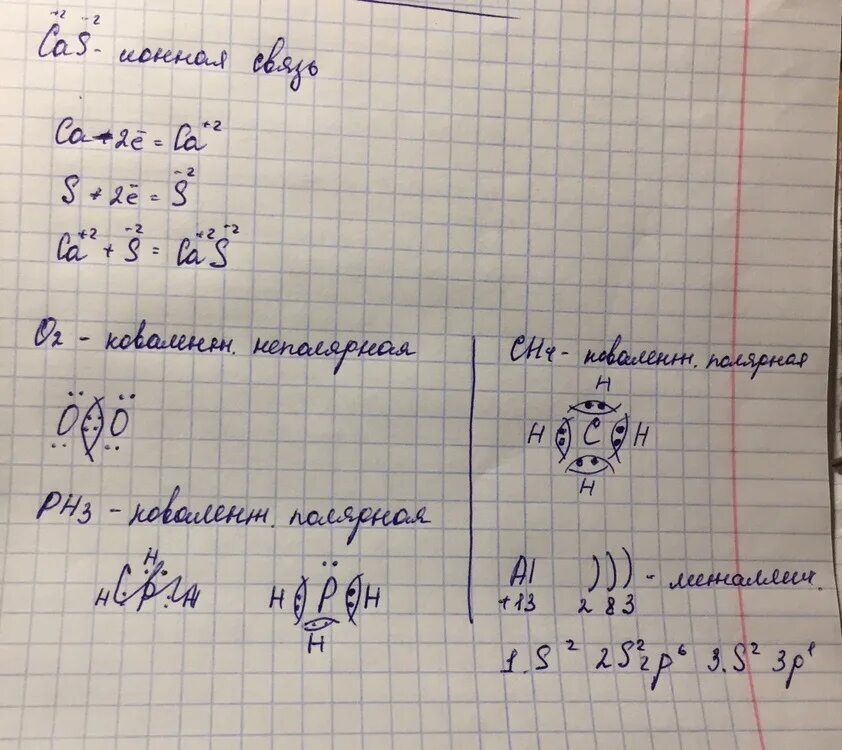 +2 -2
CaS - ионная связь
Ca - 2ē = Ca+2
S + 2ē = S-2
Ca+2 + S-2 = Ca+2S-2
O2 - ковалентн. неполярная
O O
PH3 - ковалент. полярная
H
H P H
H P H
H
CH4 - ковалент. полярная
H
H C H
H
Al ))) - металлич.
+13 2 8 3
1.S2 2S2 2p6 3.S2 3p1